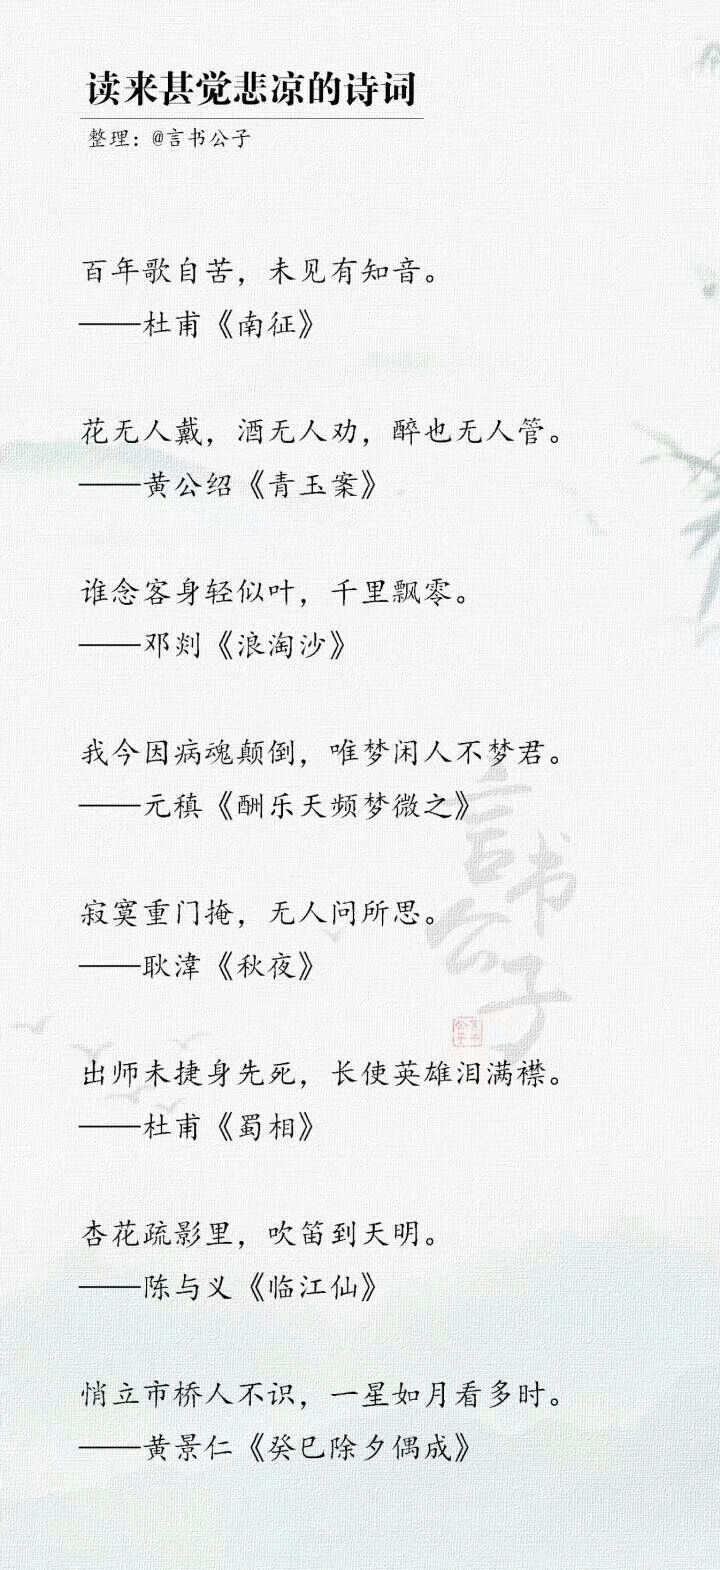 读来甚觉悲凉的诗词
整理：@言书公子
百年歌自苦，未见有知音。
——杜甫《南征》
花无人戴，酒无人劝，醉也无人管。
——黄公绍《青玉案》
谁念客身轻似叶，千里飘零。
——邓剡《浪淘沙》
我今因病魂颠倒，唯梦闲人不梦君。
——元稹《酬乐天频梦微之》
言书公子
寂寞重门掩，无人问所思。
——耿湋《秋夜》
出师未捷身先死，长使英雄泪满襟。
——杜甫《蜀相》
杏花疏影里，吹笛到天明。
——陈与义《临江仙》
悄立市桥人不识，一星如月看多时。
——黄景仁《癸巳除夕偶成》